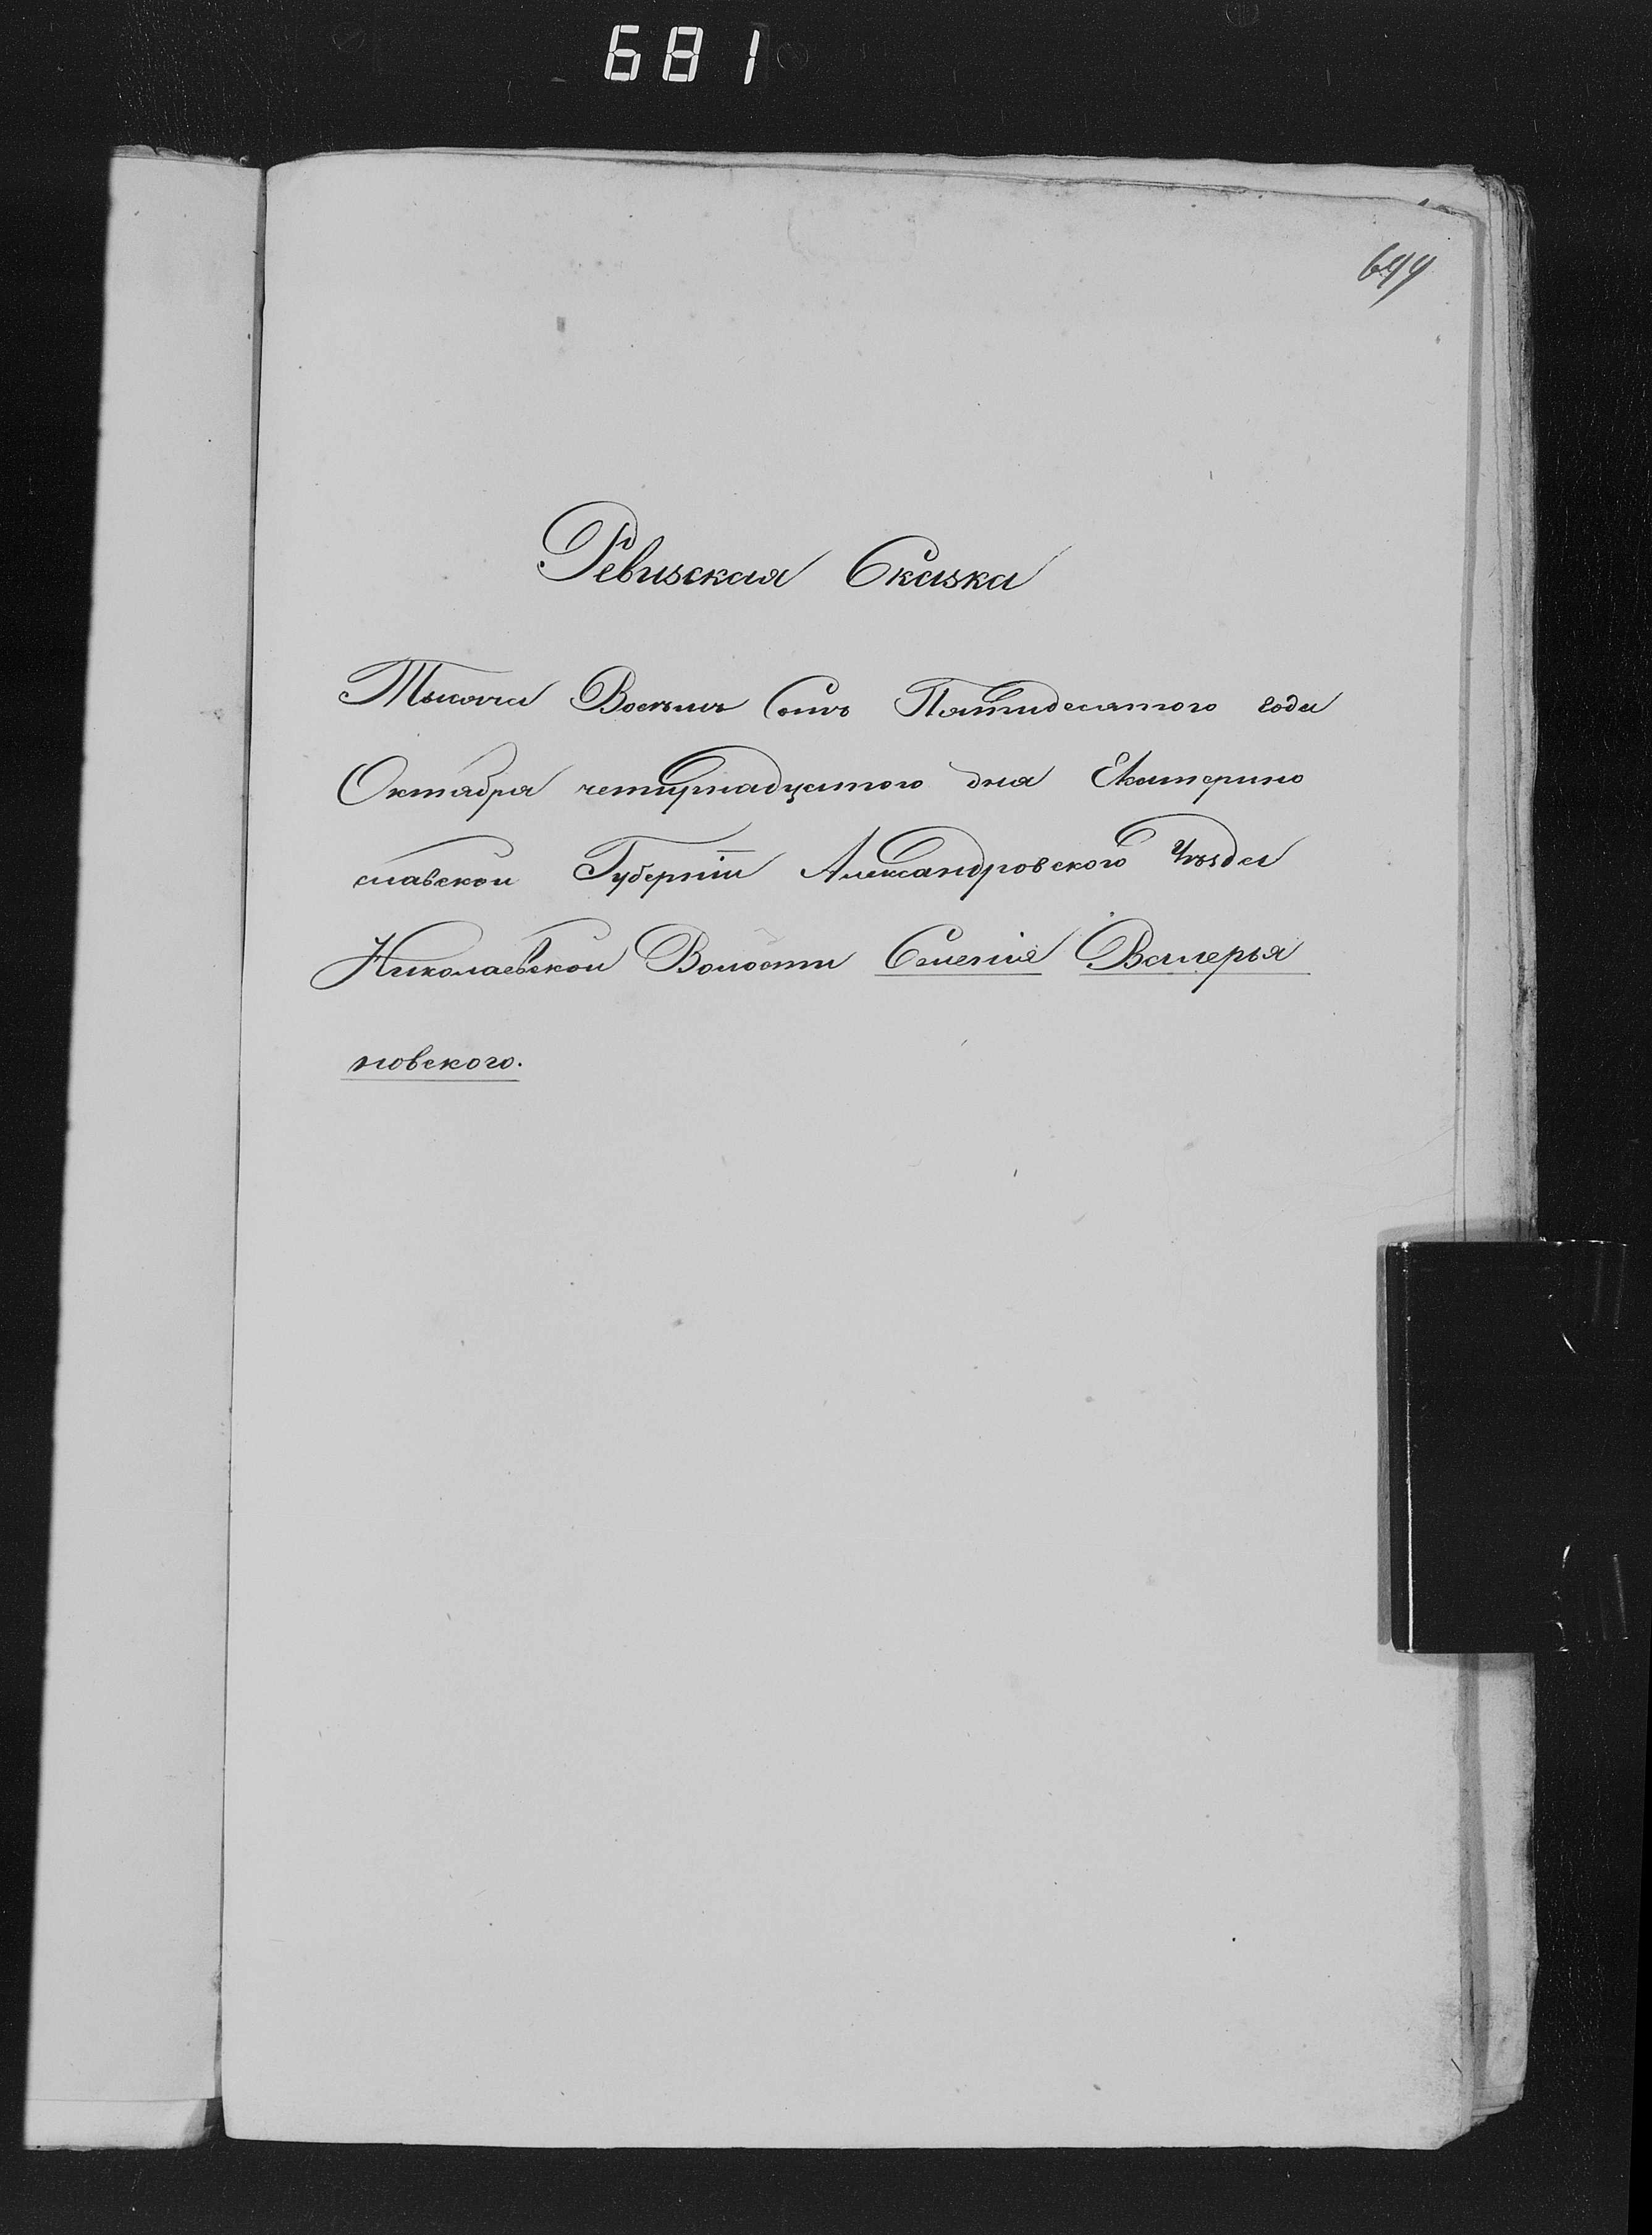 681
699
Ревизская Сказка
Тысяча Восемь Сотъ Пятидесятого года
Октября четырнадцатого дня Екатерино
славской Губерніи Александровского Уѣзда
Николаевской Волости Селенія Валерья
новского.